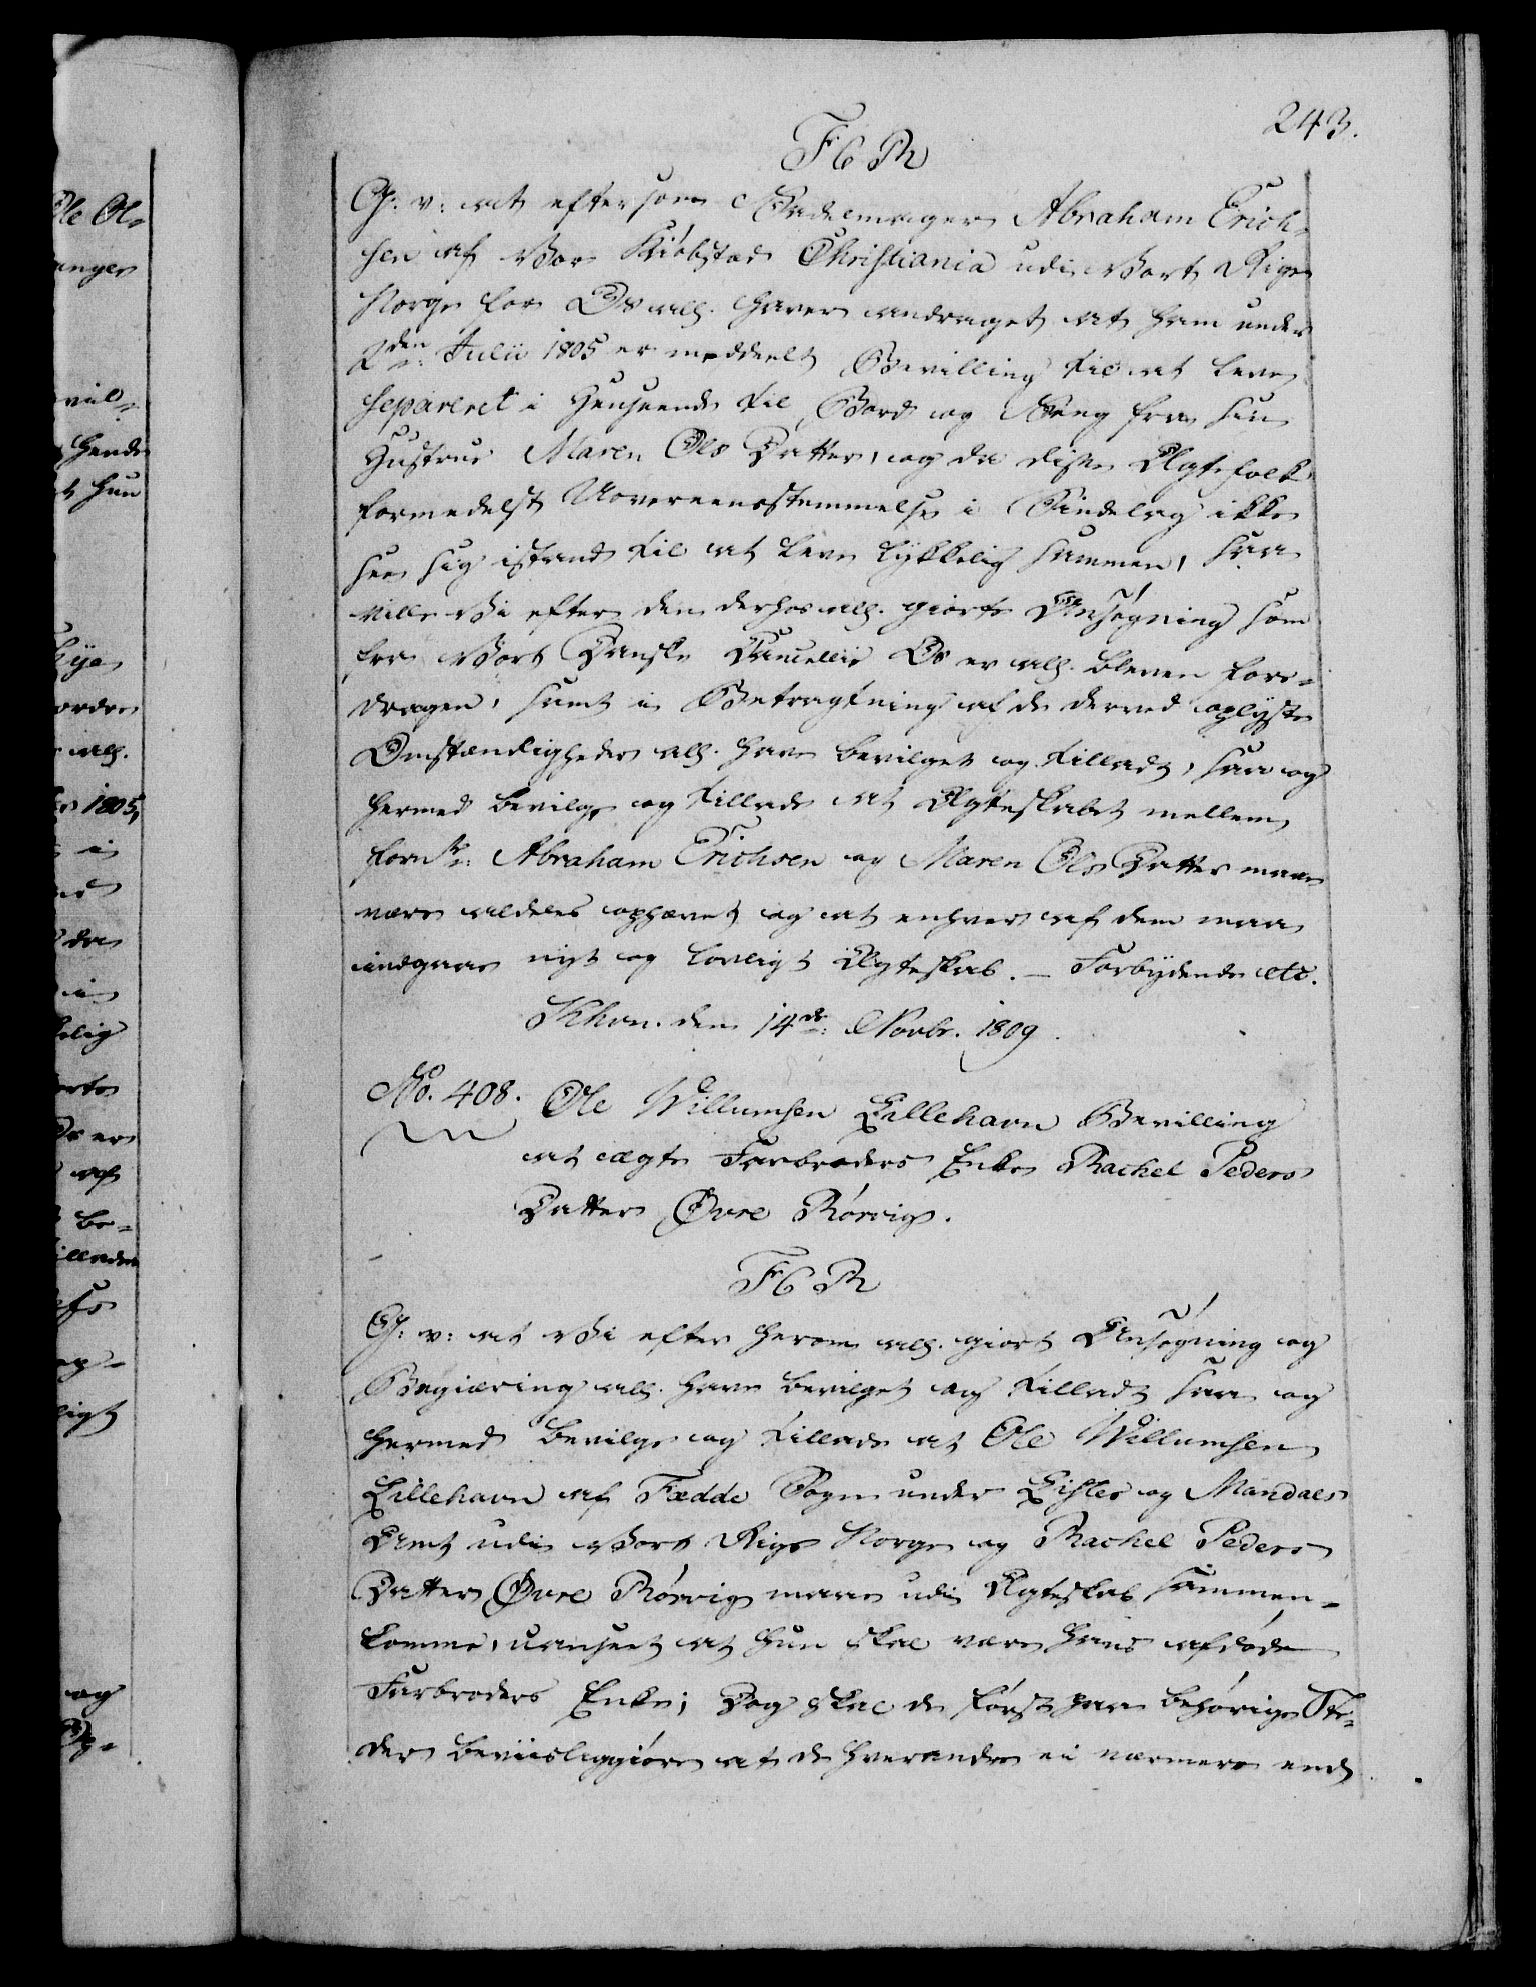 243.
F6R
G: v: at eftersom Sadelmager Abraham Erich-
sen af Vor Kiøbstad Christiania udi Vort Rige
Norge for Os all. haver andraget at ham under
2den Julii 1805 er meddeelt Bevilling til at leve
separeret i Henseende til Bord og Seng fra sin
Hustrue Maren Ols Datter, og da disse Ægtefolk
formedelst Uovereensstemmelse i Sindelag ikke
see sig istand til at leve lykkelig sammen, saa
ville Vi efter den derhos all. giorte Ansøgning som
fra Vort Danske Cancellie Os er all. bleven fore-
dragen, samt i Betragtning af de derved oplyste
Omstændigheder all. have bevilget og tilladt, saa og
hermed bevilge og tillade at Ægteskabet mellem
fornte: Abraham Erichsen og Maren Ols Datter maae
være aldeles ophævet og at enhver af dem maa
indgaae nyt og lovligt Ægteskab. — Forbydende etc.
Khvn. den 14de: Novbr. 1809.
No. 408. Ole Willumsen Lillehavn Bevilling
at ægte Farbroders Enke Rachel Peders
Datter Øvre Rørvig.
F6R
G: v: at Vi efter herom all. giort Ansøgning og
Begiæring all. have bevilget og tilladt saa og
hermed bevilge og tillade at Ole Willumsen
Lillehavn af Fædde Sogn under Lister og Mandals
Amt udi Vort Rige Norge og Rachel Peders
Datter Øvre Rørvig maae udi Ægteskab sammen-
komme, uanseet at hun skal være hans afdøde
Farbroders Enke; Dog skal de først paa behørige Ste-
der beviisliggiøre at de hverandre ei nærmere end